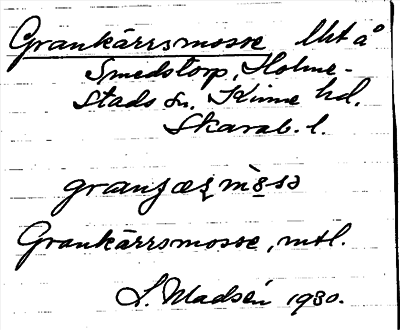 Grankärrsmosse Uht å
Smedstorp, Holme-
Stads sn. Kinne hd.
Skarab. l.
Grankärrsmosse, mtl.
S. Madsén 1930.